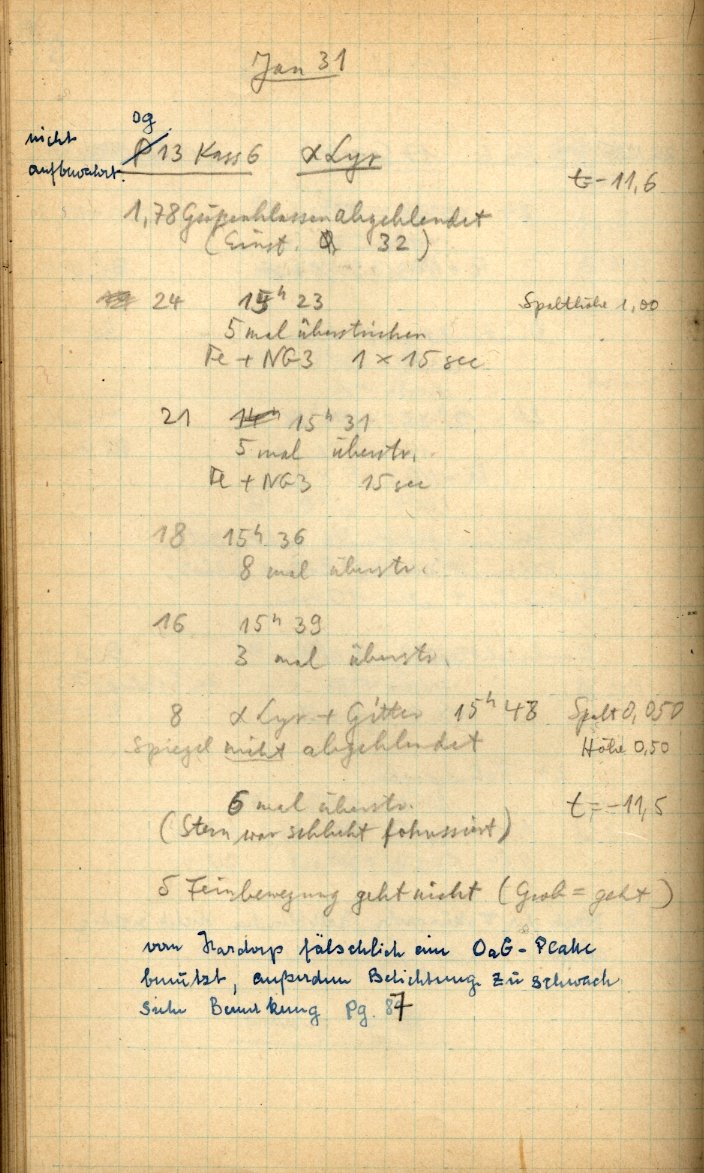 Jan 31
Og
nicht
aufbewahrt.
13 Kass 6 α Lyr
t = -11,6
1,78 Größenklassen abgeblendet
(Einst. 32)
24 15ʰ 23 Spalthöhe 1,00
5 mal überstrichen
Fe + NG3 1 × 15 sec
21 15ʰ 31
5 mal überstr.
Fe + NG3 15 sec
18 15ʰ 36
8 mal überstr.
16 15ʰ 39
3 mal überstr.
8 α Lyr + Gitter 15ʰ 48 Spalt 0,050
Spiegel nicht abgeblendet Höhe 0,50
6 mal überstr. t = -11,5
(Stern war schlecht fokussiert)
5 Feinbewegung geht nicht (Grob = geht)
von Hardorp fälschlich eine OaG-Platte
benützt, außerdem Belichtung zu schwach
Siehe Bemerkung Pg. 87